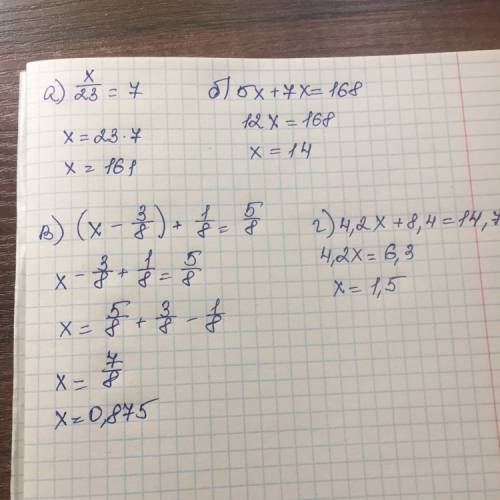 а) x/23 = 7
x = 23·7
x = 161
б) 5x+7x=168
12x = 168
x = 14
в) (x - 3/8) + 1/8 = 5/8
x - 3/8 + 1/8 = 5/8
x = 5/8 + 3/8 - 1/8
x = 7/8
x = 0,875
г) 4,2x + 8,4 = 14,7
4,2x = 6,3
x = 1,5